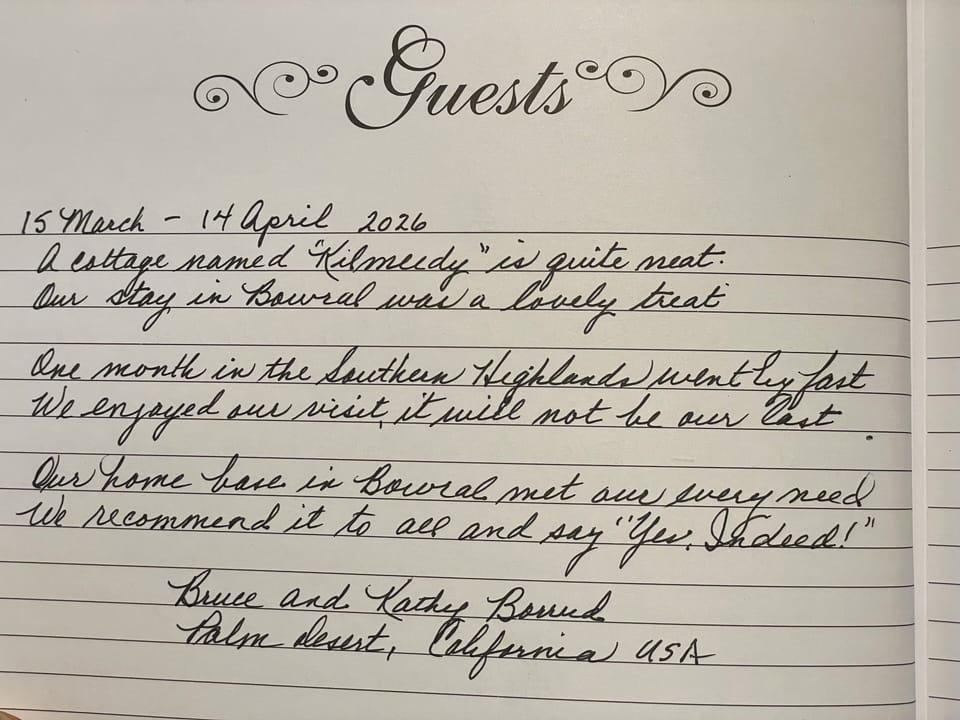 Guests
15 March - 14 April 2026
A cottage named "Kilmeedy" is quite neat.
Our stay in Bowral was a lovely treat
One month in the Southern Highlands went by fast
We enjoyed our visit, it will not be our last.
Our home base in Bowral met our every need
We recommend it to all and say "Yes, Indeed!"
Bruce and Kathy Borrud
Palm desert, California USA